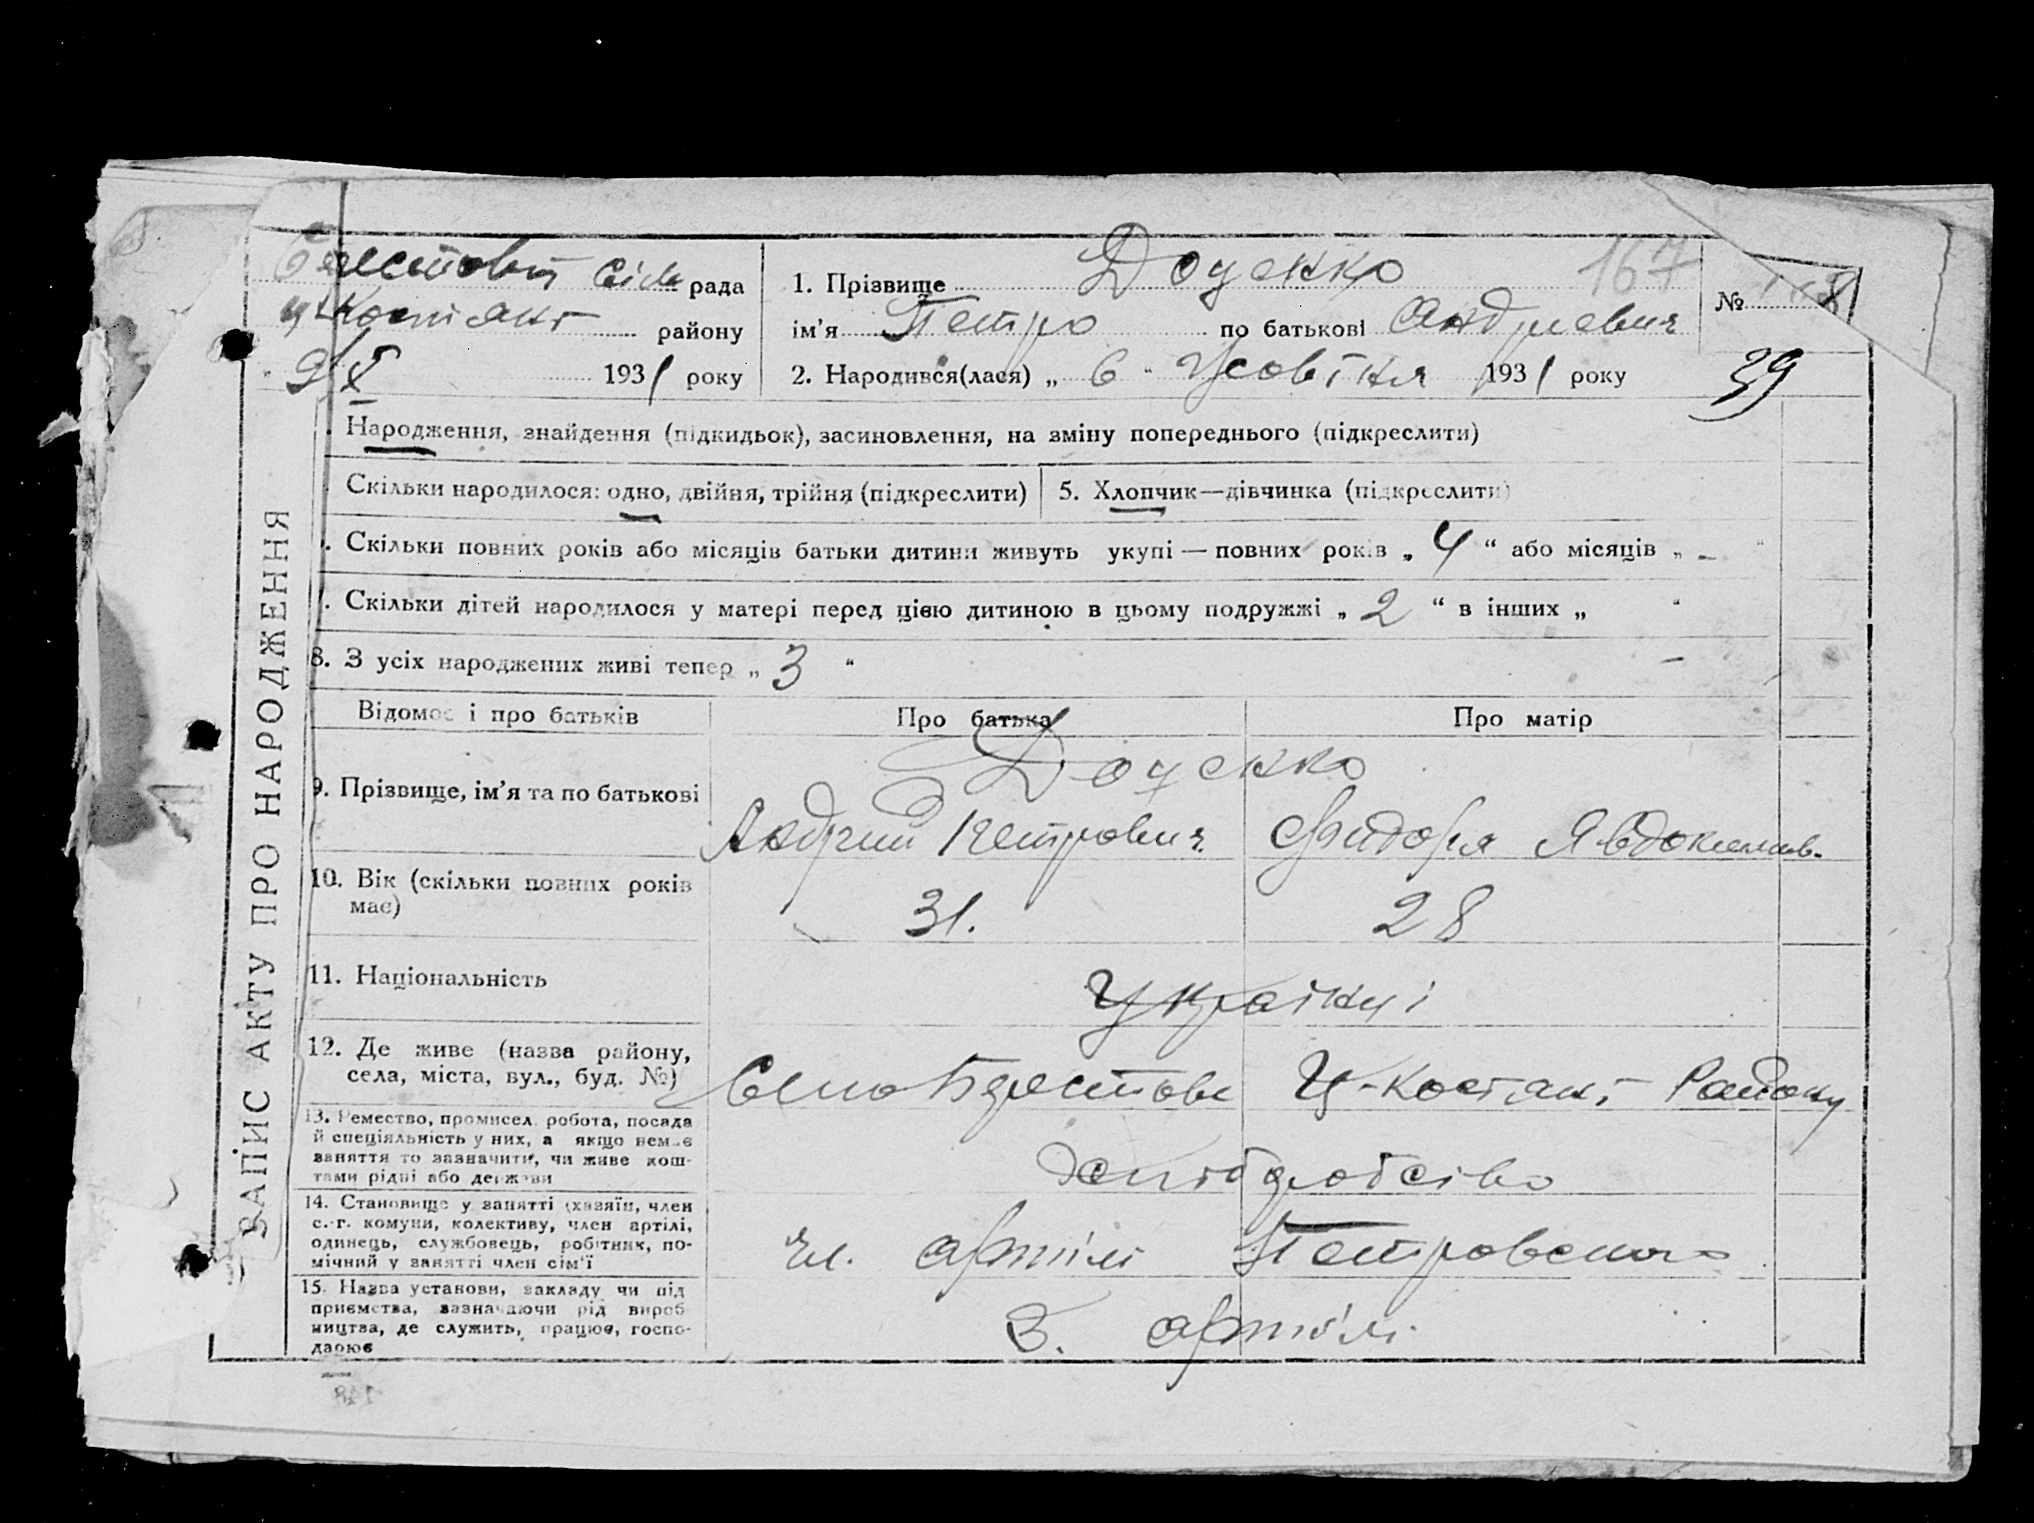 сіль рада
Костянт району
9/X 1931 року
1. Прізвище Доценко
167
ім'я Петро по батькові Андриевич
№
2. Народився(лася) „ 6 " Жовтня 1931 року
39
ЗАПИС АКТУ ПРО НАРОДЖЕННЯ
Народження, знайдення (підкидьок), засиновлення, на зміну попереднього (підкреслити)
Скільки народилося: одно, двійня, трійня (підкреслити)
5. Хлопчик—дівчинка (підкреслити)
. Скільки повних років або місяців батьки дитини живуть укупі — повних років „ 4 “ або місяців „ – “
. Скільки дітей народилося у матері перед цією дитиною в цьому подружжі „ 2 “ в інших „ “
8. З усіх народжених живі тепер „ 3 “ –
Відомос і про батьків
Про батька
Про матір
9. Прізвище, ім'я та по батькові
Доценко
Андрий Петрович
Явдокимов.
10. Вік (скільки повних років
має)
31.
28
11. Національність
Українці
12. Де живе (назва району,
села, міста, вул., буд. №)
Село Берестове Ц-Костянт Району
13. Ремество, промисел, робота, посада
й спеціяльність у них, а якщо немає
заняття то зазначити, чи живе кош-
тами рідні або держави
14. Становище у занятті (хазяїн, член
с.-г. комуни, колективу, член артілі,
одинець, службовець, робітник, по-
мічний у занятті член сім'ї
чл. артілі Петровского
15. Назва установи, закладу чи під
приємства, зазначаючи рід вироб
ництва, де служить, працює, госпо-
дарює
З. артілі
148